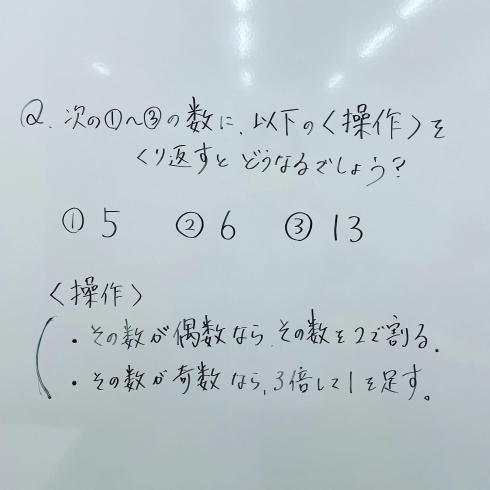 Q. 次の①〜③の数に、以下の〈操作〉を
くり返すと どうなるでしょう?
① 5 ② 6 ③ 13
〈操作〉
・その数が偶数なら、その数を2で割る.
・その数が奇数なら、3倍して1を足す。